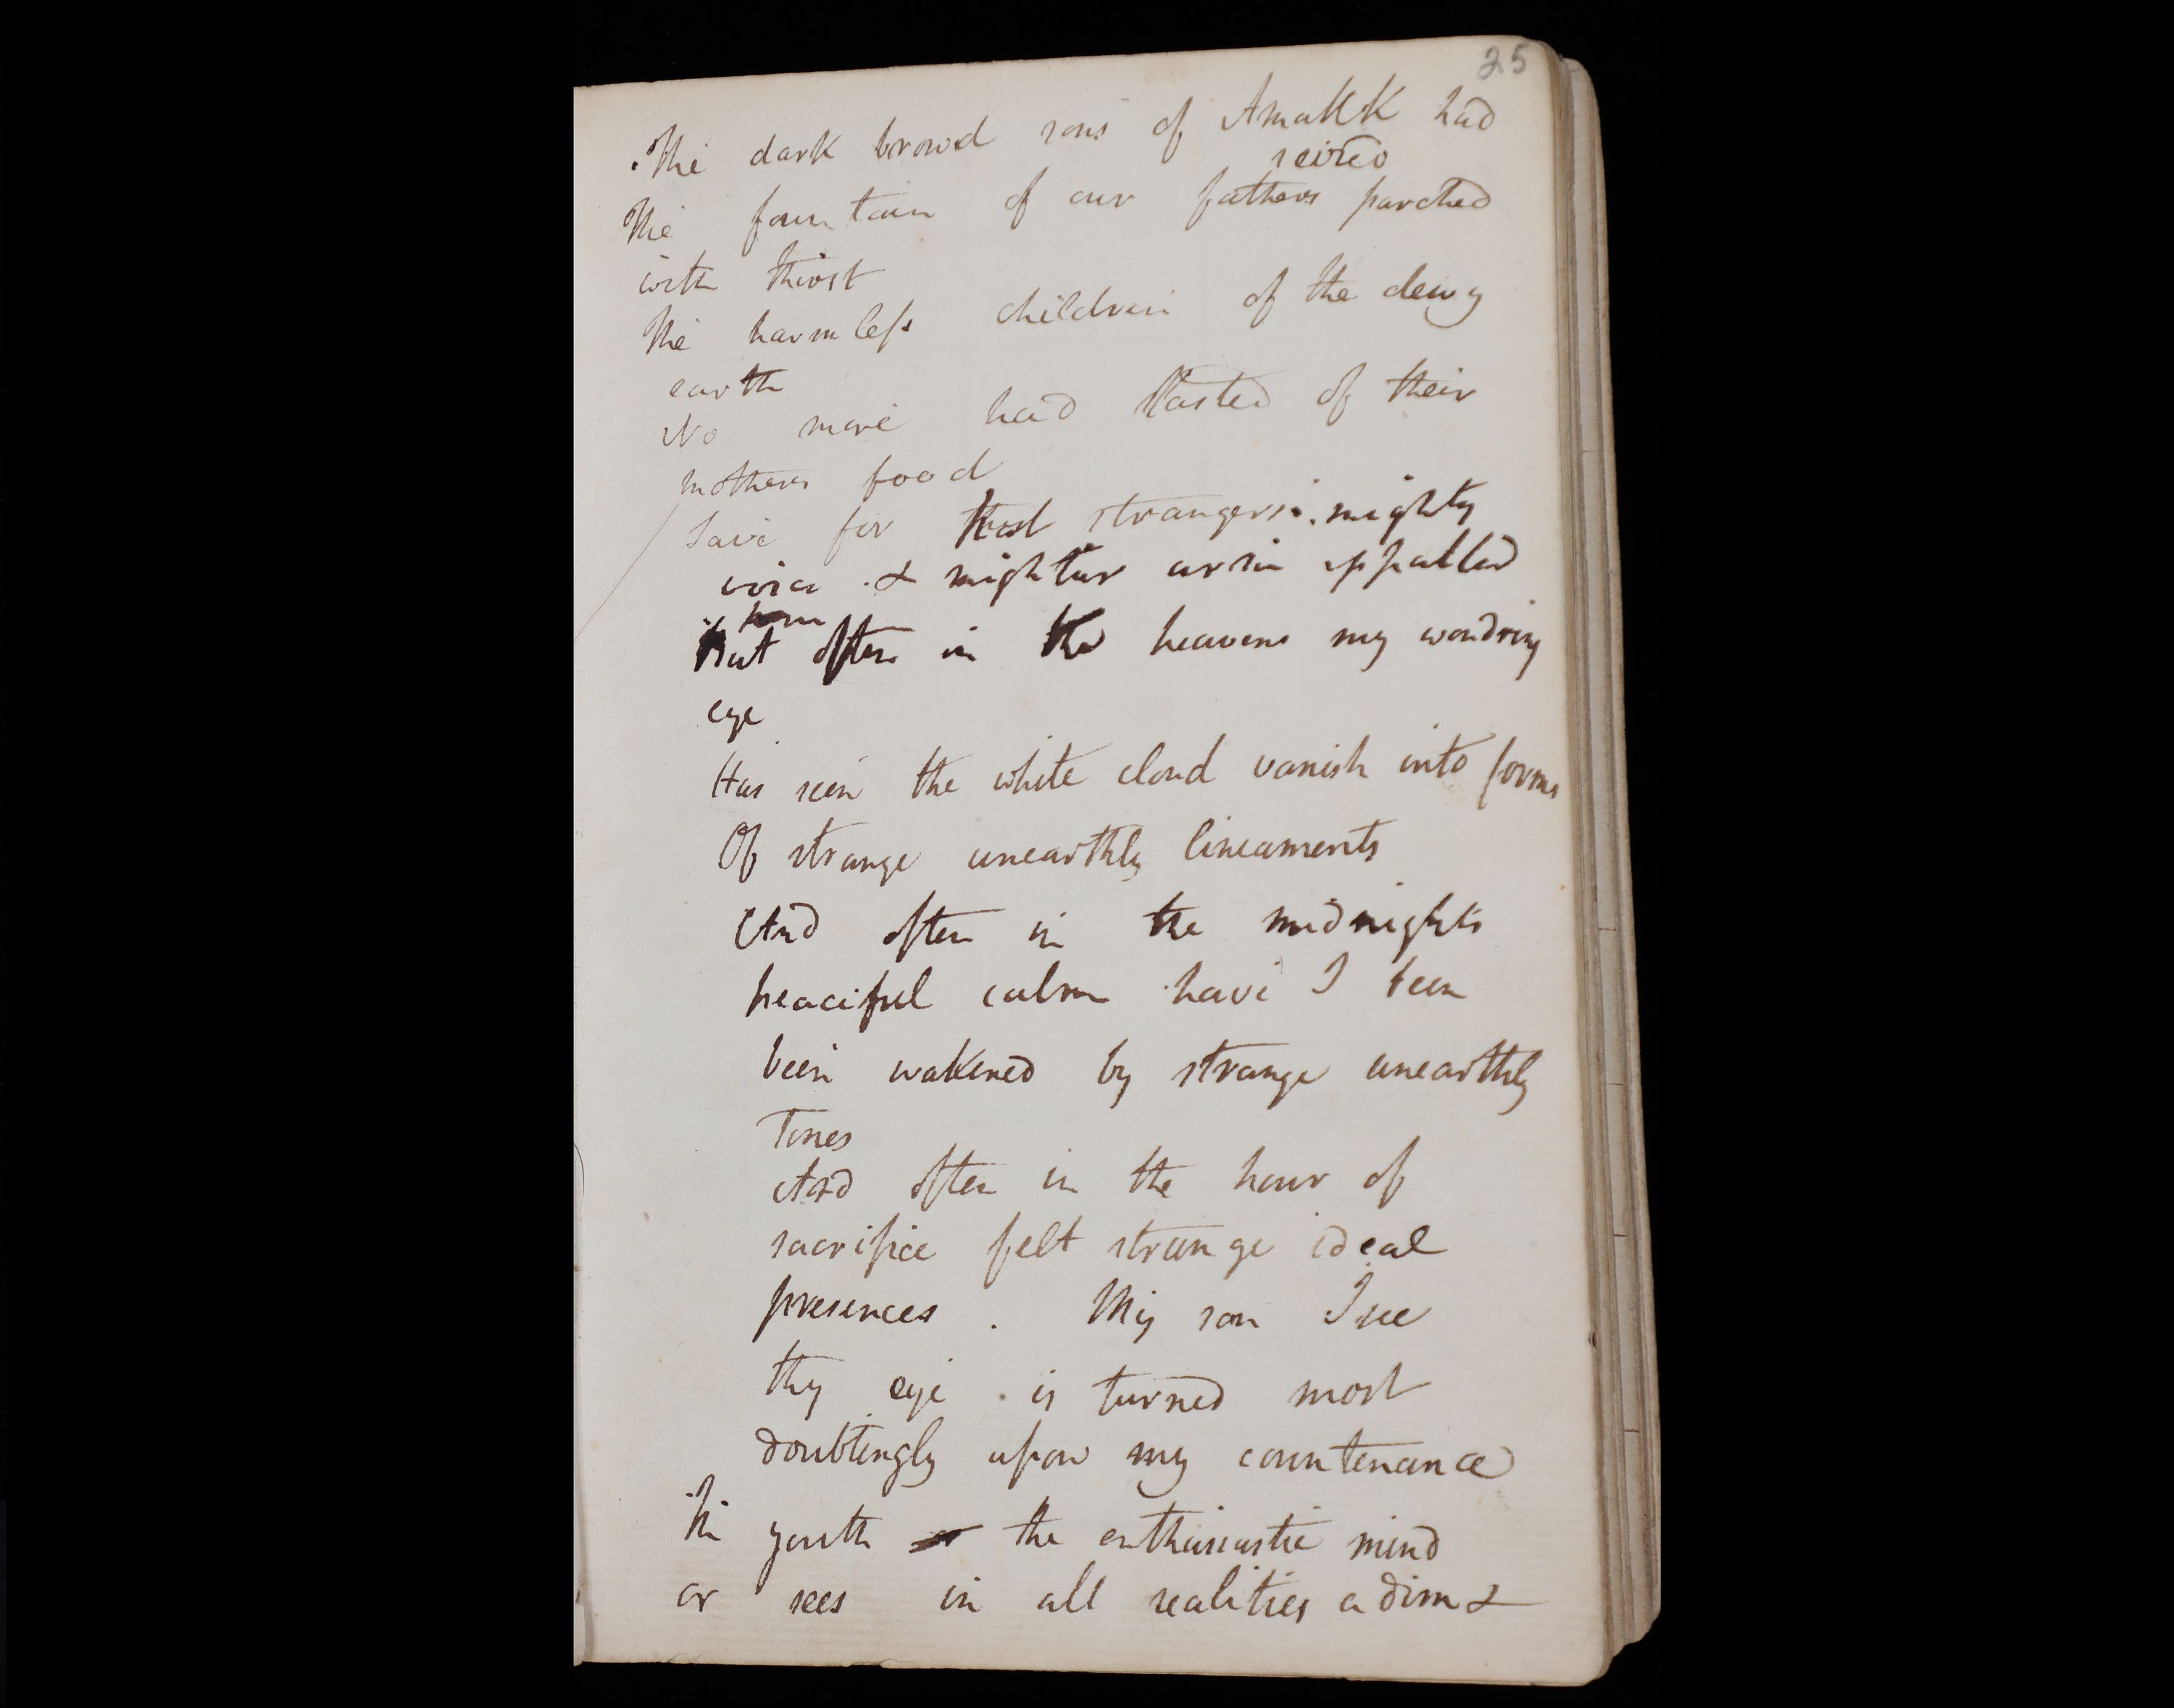 25
The dark browd sons of Amalek had
seized
The fountain of our fathers parched
with thirst
The harmless children of the dewy
earth
No more had tasted of their
mothers food
Save for that strangers mighty
voice & mightier arm appalled
But often in the heavens my wondring
eye
Has seen the white cloud vanish into forms
Of strange unearthly lineaments
And often in the midnights
peaceful calm have I been
been wakened by strange unearthly
Tones
And often in the hour of
sacrifice felt strange ideal
presences. My son I see
thy eye is turned most
doubtingly upon my countenance
In youth the enthusiastic mind
or sees in all realities a dim &